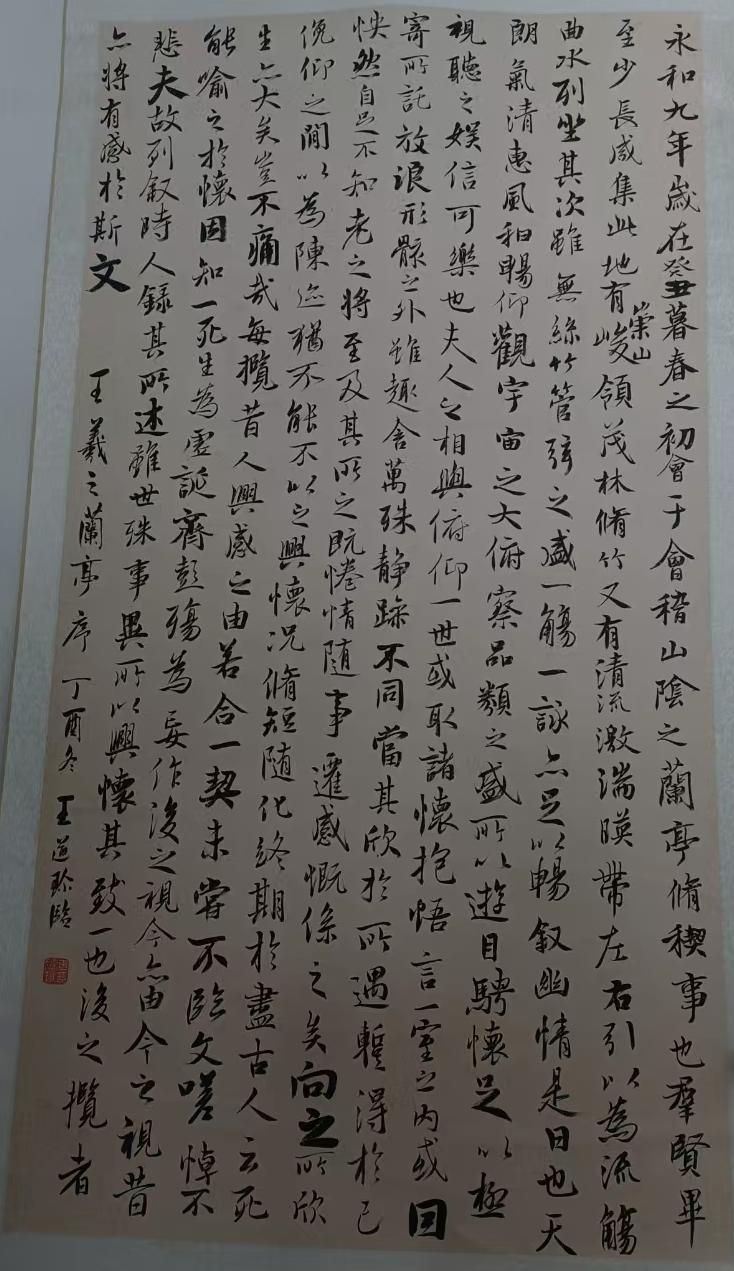 永和九年歲在癸丑暮春之初會于會稽山陰之蘭亭脩稧事也羣賢畢
至少長咸集此地有崇山峻領茂林脩竹又有清流激湍暎帶左右引以為流觴
曲水列坐其次雖無絲竹管弦之盛一觴一詠亦足以暢叙幽情是日也天
朗氣清惠風和暢仰觀宇宙之大俯察品類之盛所以遊目騁懷足以極
視聽之娛信可樂也夫人之相與俯仰一世或取諸懷抱悟言一室之內或因
寄所託放浪形骸之外雖趣舍萬殊静躁不同當其欣於所遇蹔得於己
怏然自足不知老之將至及其所之既惓情随事遷感慨係之矣向之所欣
俛仰之閒以為陳迹猶不能不以之興懷况脩短随化終期於盡古人云死
生亦大矣豈不痛哉每攬昔人興感之由若合一契未嘗不臨文嗟悼不
能喻之於懷固知一死生為虛誕齊彭殤為妄作後之視今亦由今之視昔
悲夫故列叙時人錄其所述雖世殊事異所以興懷其致一也後之攬者
亦將有感於斯文
王羲之蘭亭序 丁酉冬 王道珍臨